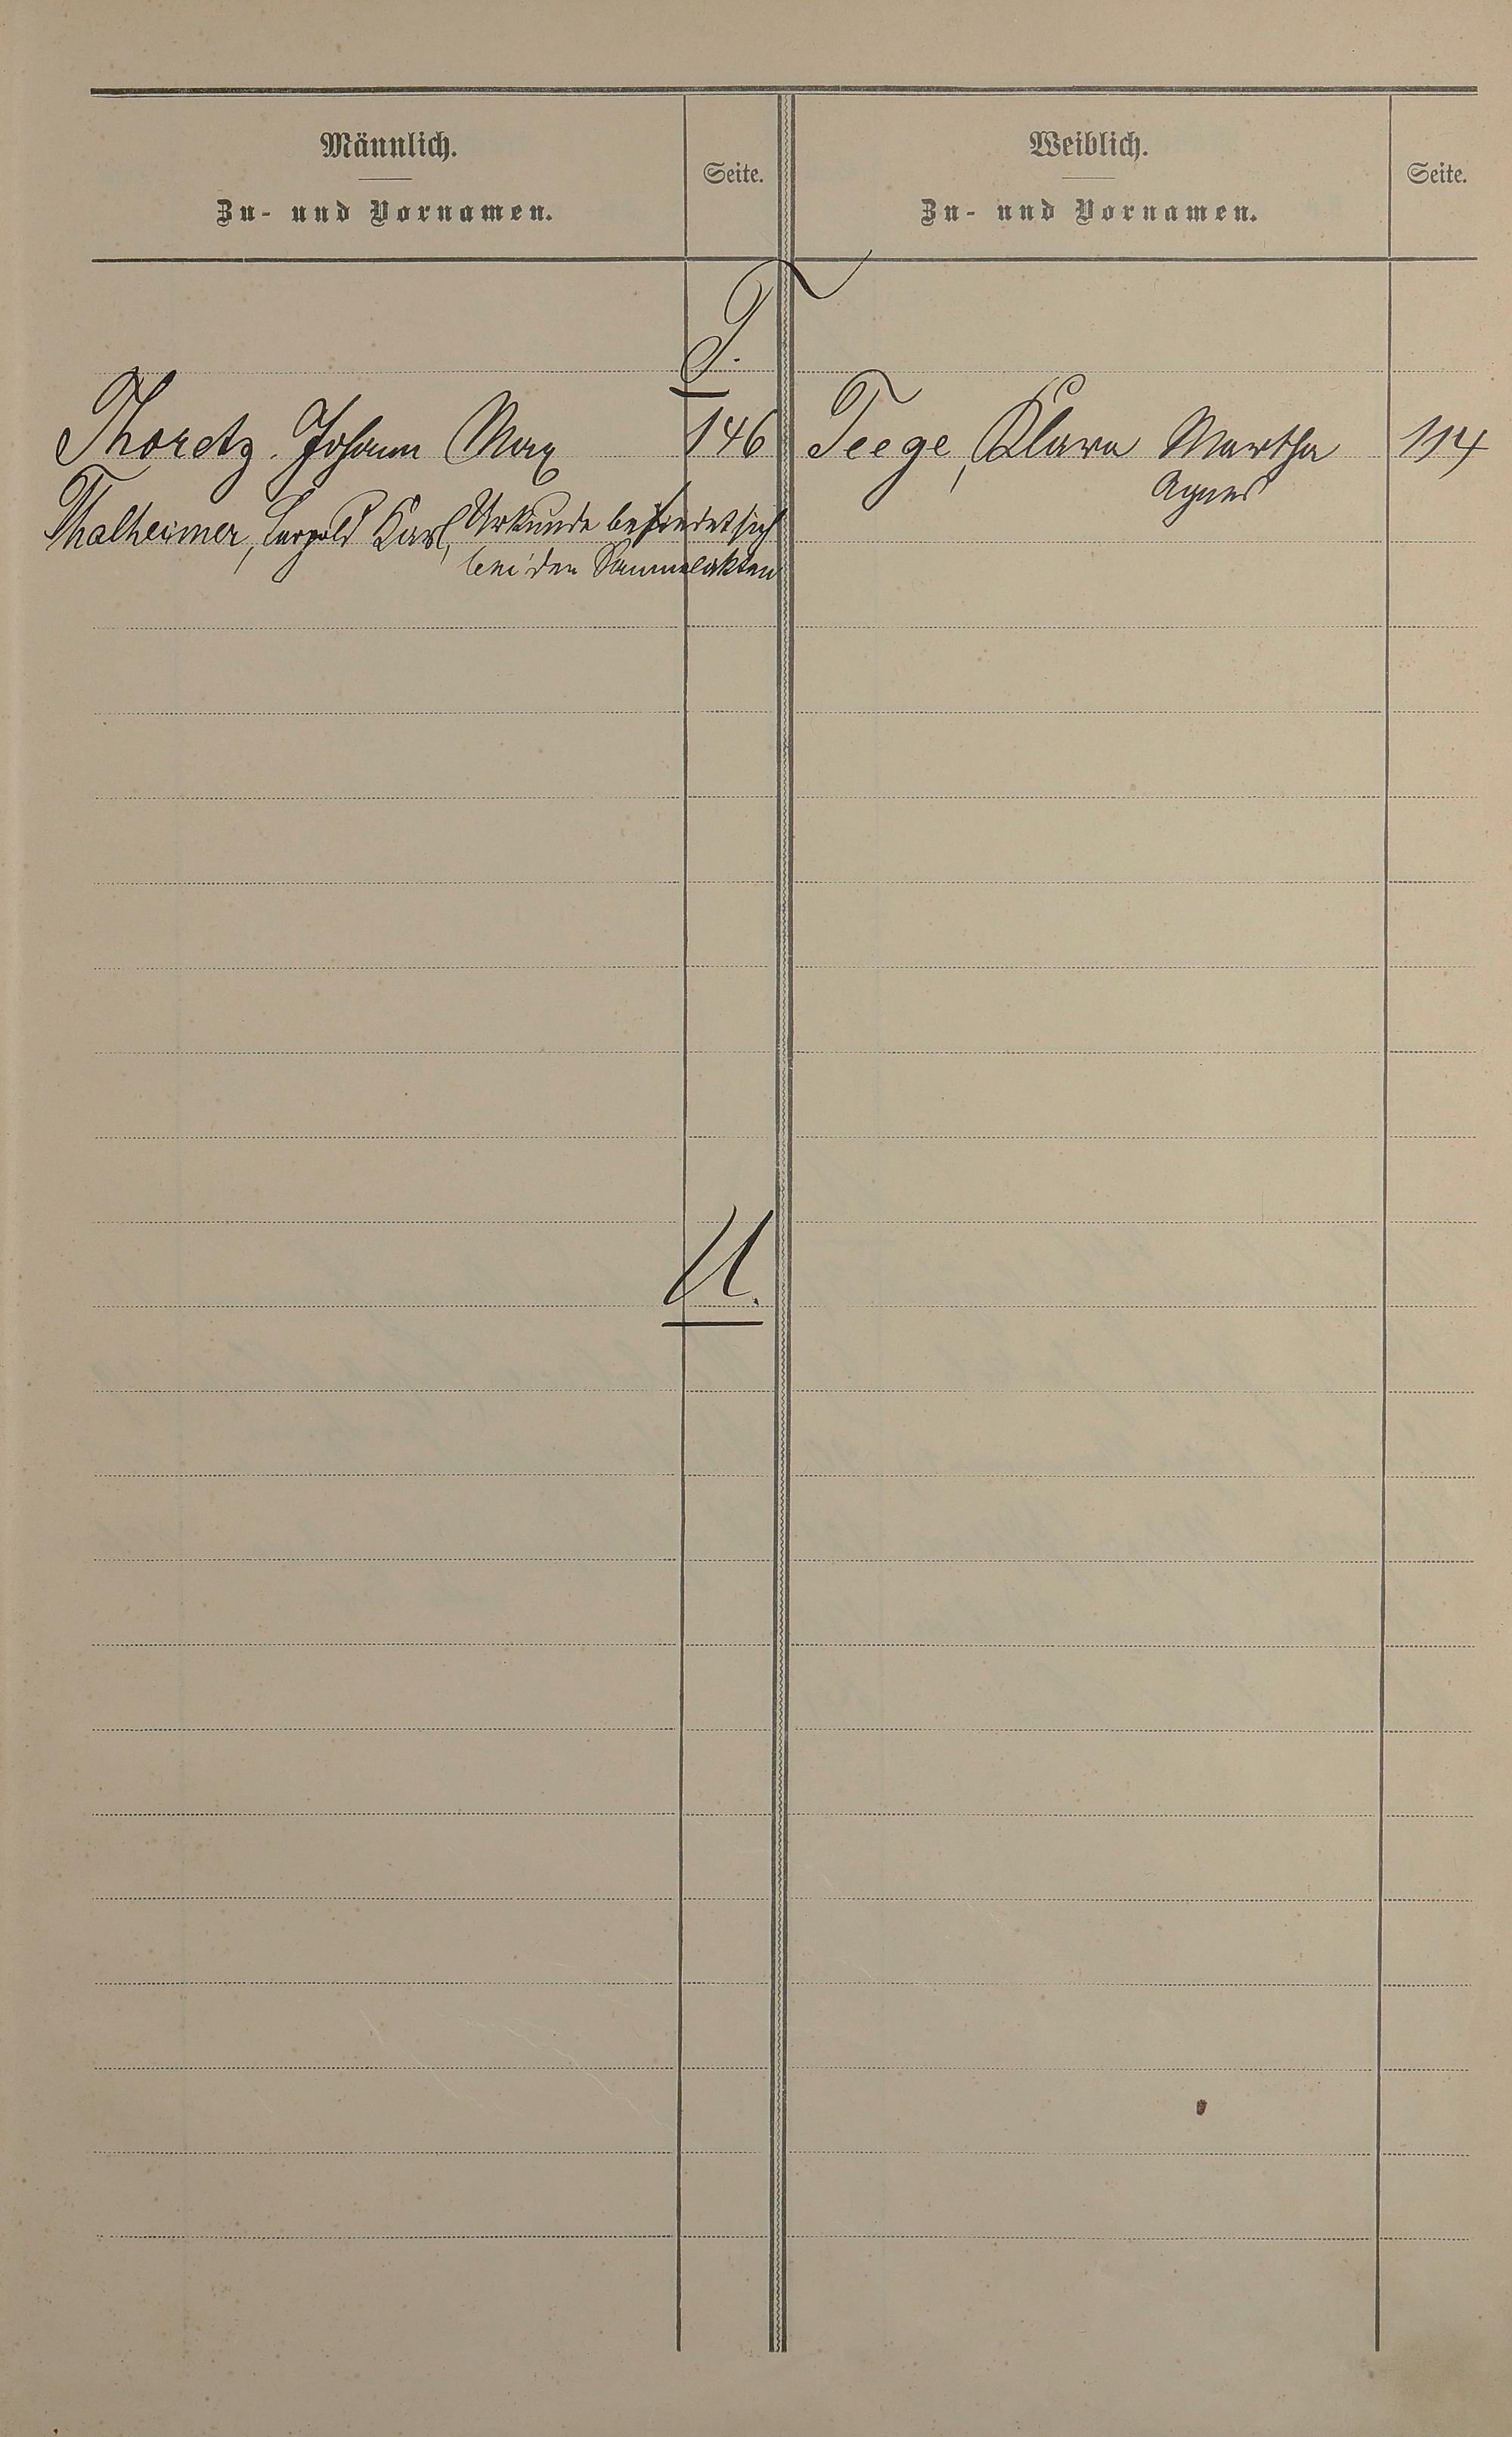 Männlich.
Zu- und Vornamen.
Seite.
Weiblich.
Zu- und Vornamen.
Seite.
T.
Thoretz. Johann Max 146
Teege, Klara Martha 114
Agnes
Thalheimer, Leopold Karl, Urkunde befindet sich
bei den Sammelakten
U.